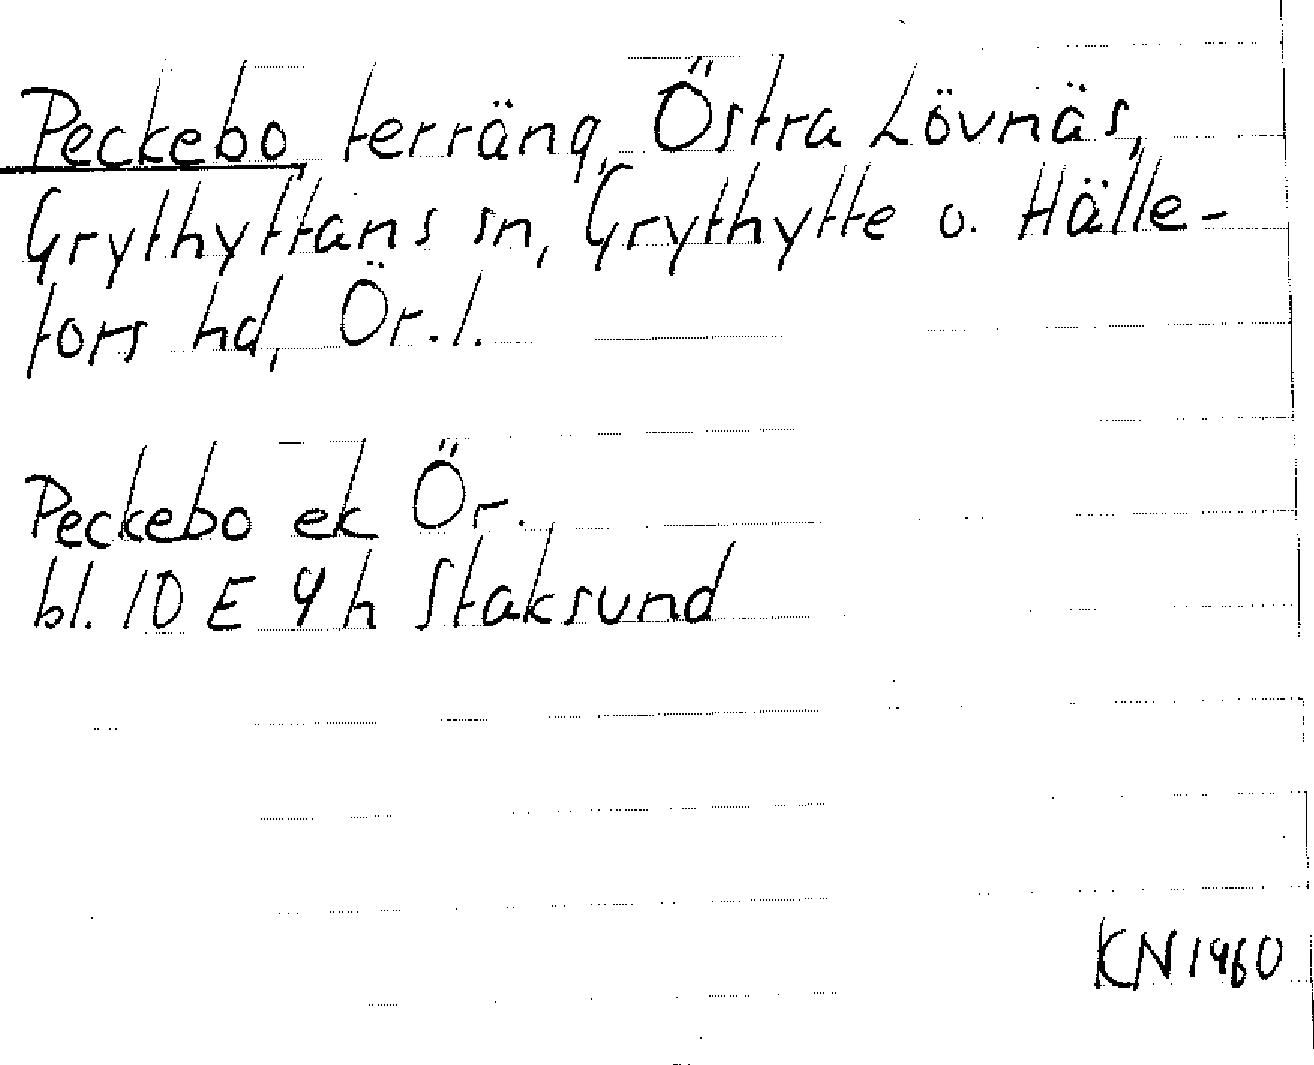 Peckebo, terräng, Östra Lövnäs,
Grythyttans sn, Grythytte o. Hälle-
fors hd, Ör. l.
Peckebo ek Ör.
bl. 10 E 9 h Staksund
KN 1960